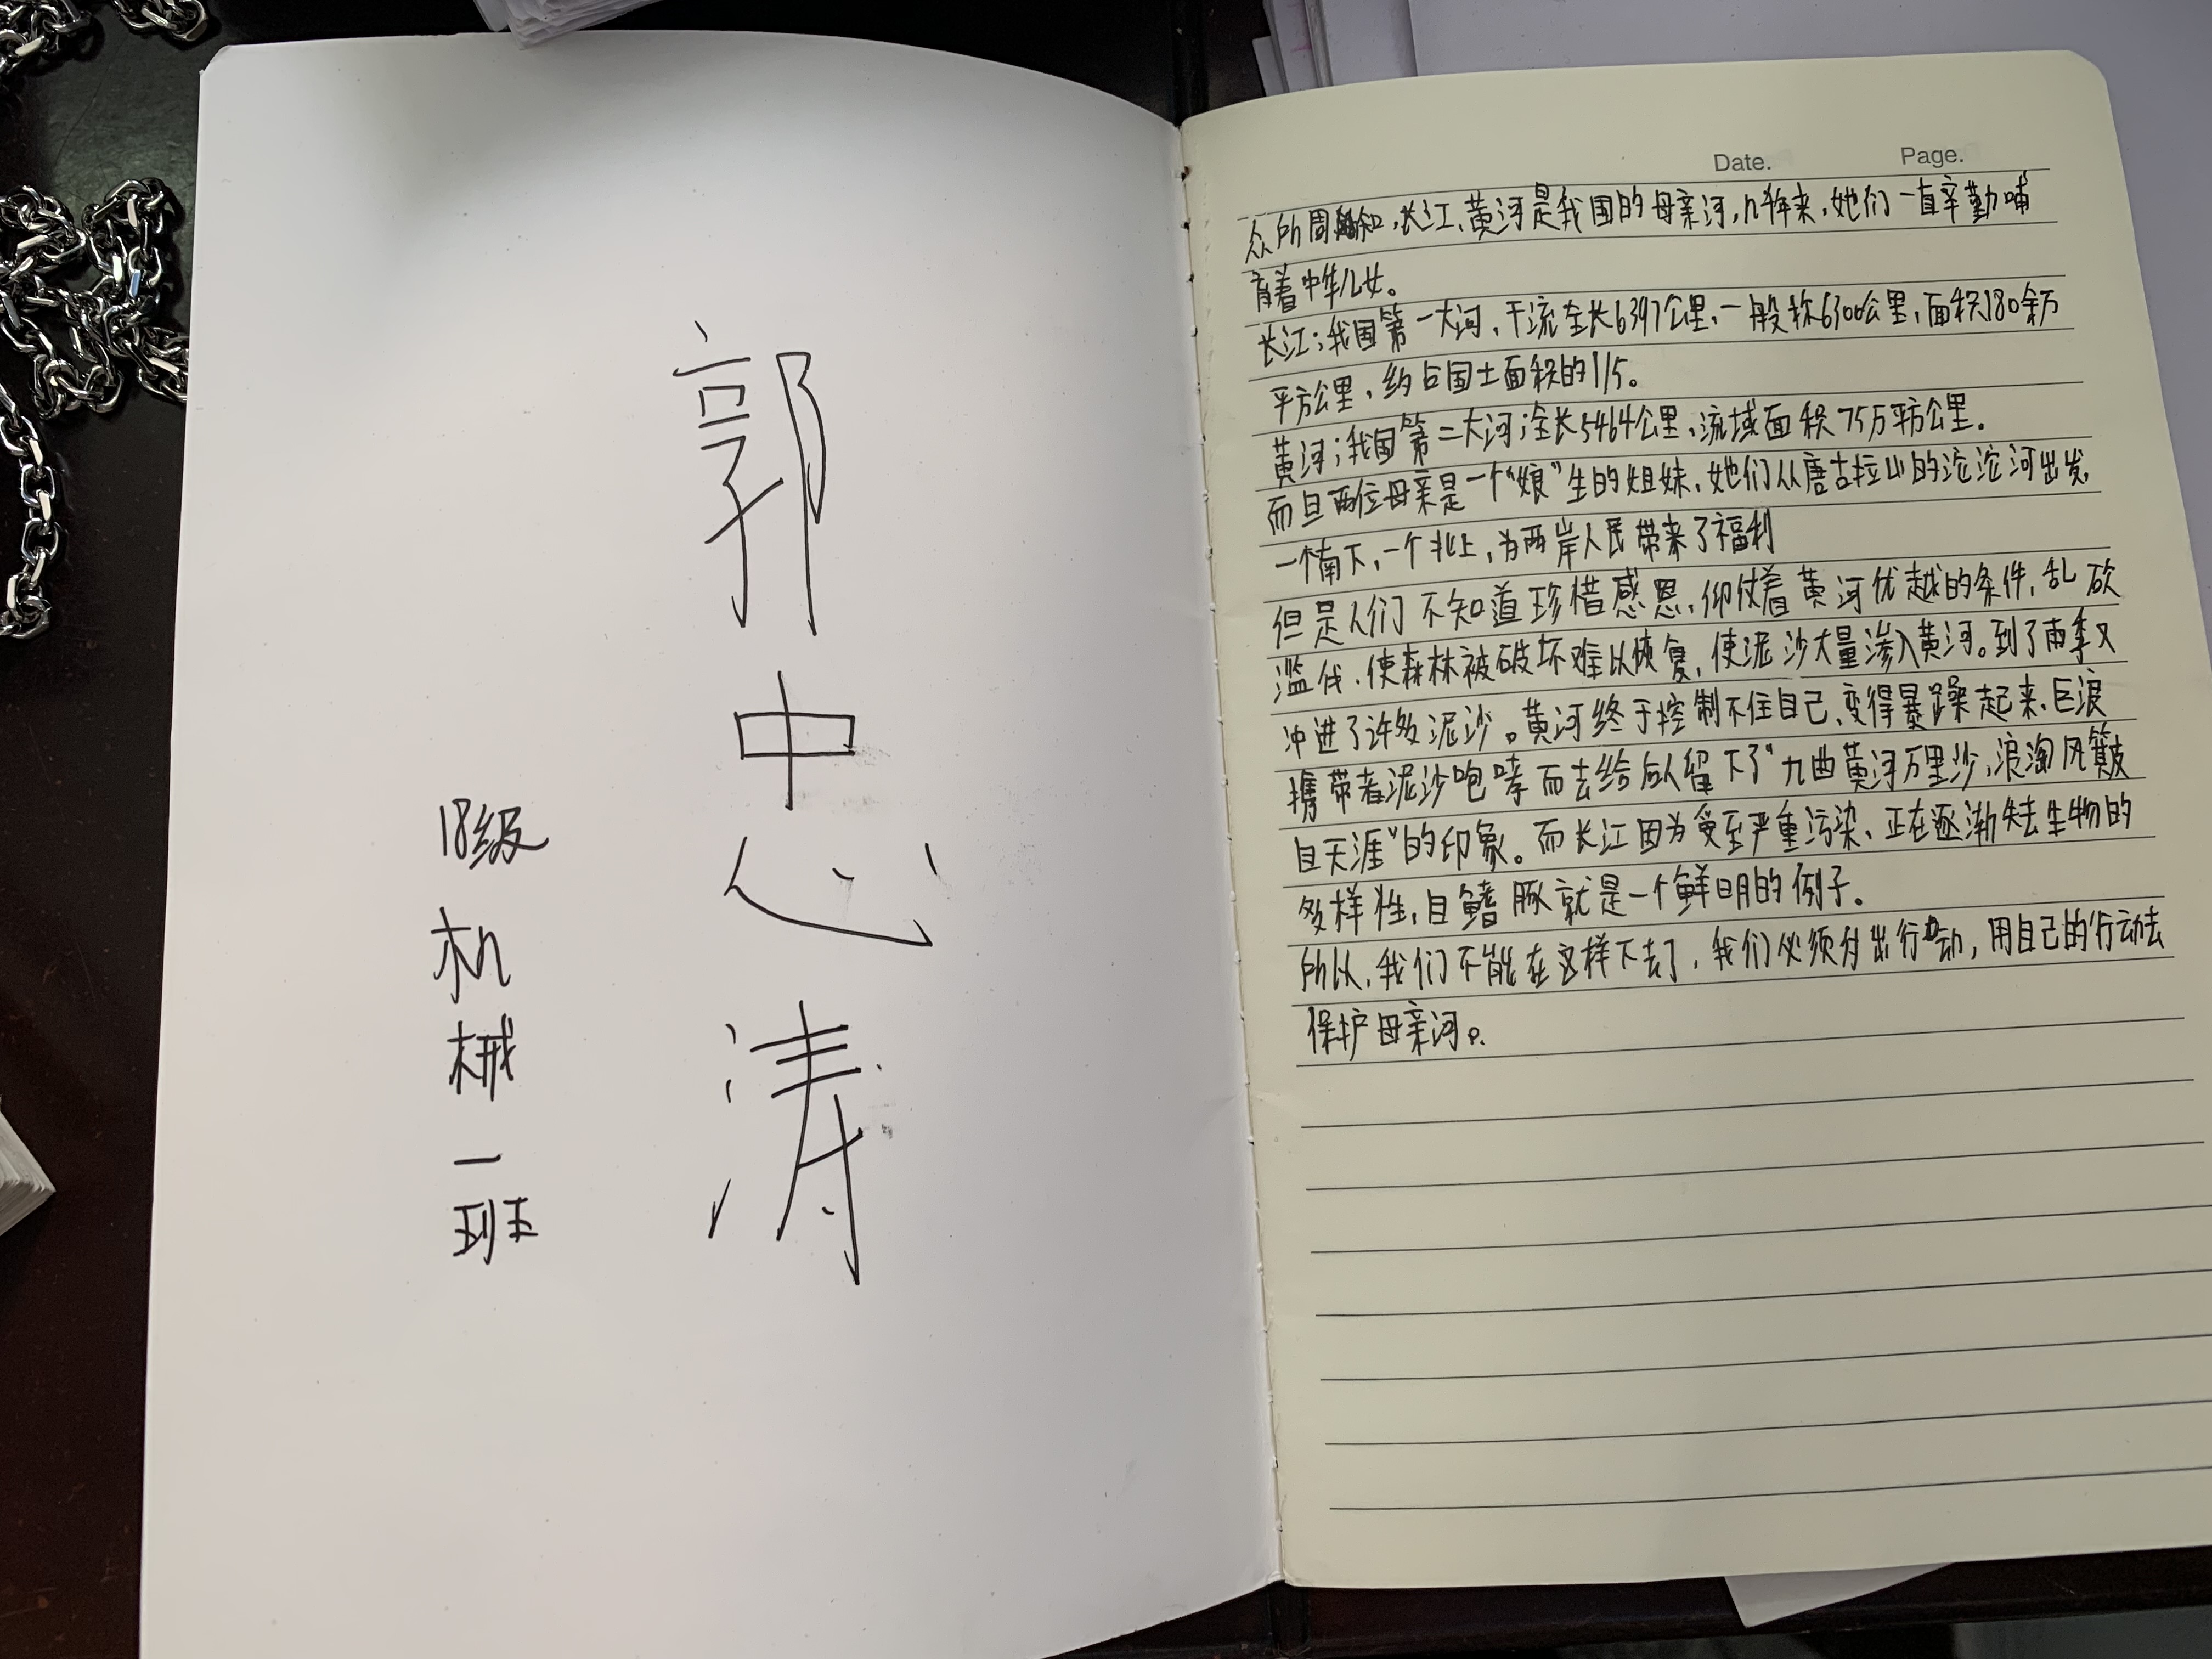 郭
忠
涛
18级
机
械
一
班
Date. Page.
众所周知,长江、黄河是我国的母亲河,几千年来,她们一直辛勤哺
育着中华儿女。
长江;我国第一大河,干流全长6397公里,一般称6300公里,面积180余万
平方公里,约占国土面积的1/5。
黄河;我国第二大河;全长5464公里,流域面积75万平方公里。
而且两位母亲是一个"娘"生的姐妹,她们从唐古拉山的沱沱河出发,
一个南下,一个北上,为两岸人民带来了福利
但是人们不知道珍惜感恩,仰仗着黄河优越的条件,乱砍
滥伐,使森林被破坏难以恢复,使泥沙大量渗入黄河。到了雨季又
冲进了许多泥沙。黄河终于控制不住自己,变得暴躁起来,巨浪
携带着泥沙咆哮而去给后人留下了"九曲黄河万里沙,浪淘风簸
自天涯"的印象。而长江因为受至严重污染,正在逐渐失去生物的
多样性,白鳍豚就是一个鲜明的例子。
所以,我们不能在这样下去了,我们必须付出行动,用自己的行动去
保护母亲河。